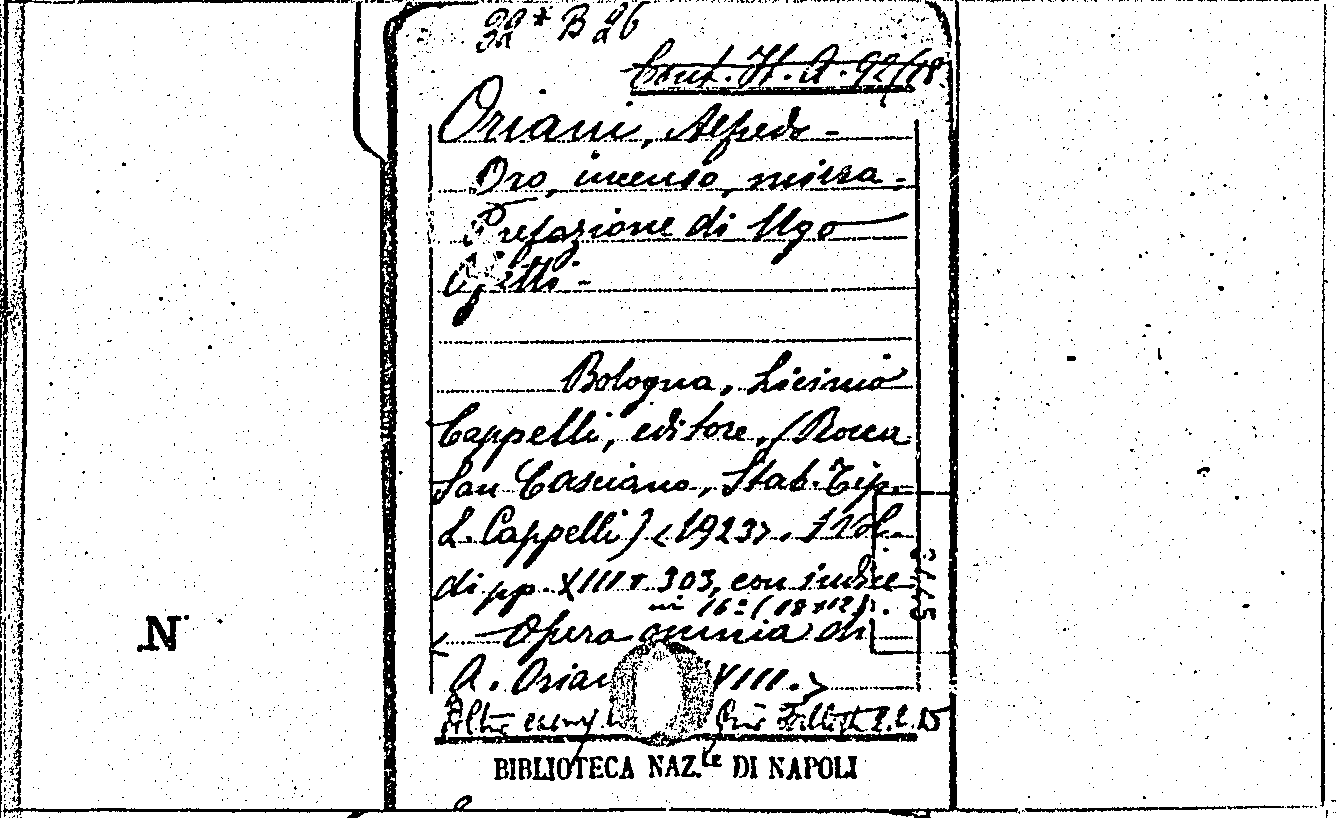 32* B 26
Cont. It. A. 92/18
Oriani, Alfredo -
Oro, incenso, mirra -
Prefazione di Ugo
Ojetti -
Bologna, Licinio
Cappelli, editore, (Rocca
San Casciano, Stab. Tip.
L. Cappelli) <1923>. 1 vol.
di pp. XIII + 303, con indice
in 16° (18x12).
< Opera omnia di
A. Orian XIII. >
Altro esemp.
5772
BIBLIOTECA NAZ.le DI NAPOLI
N